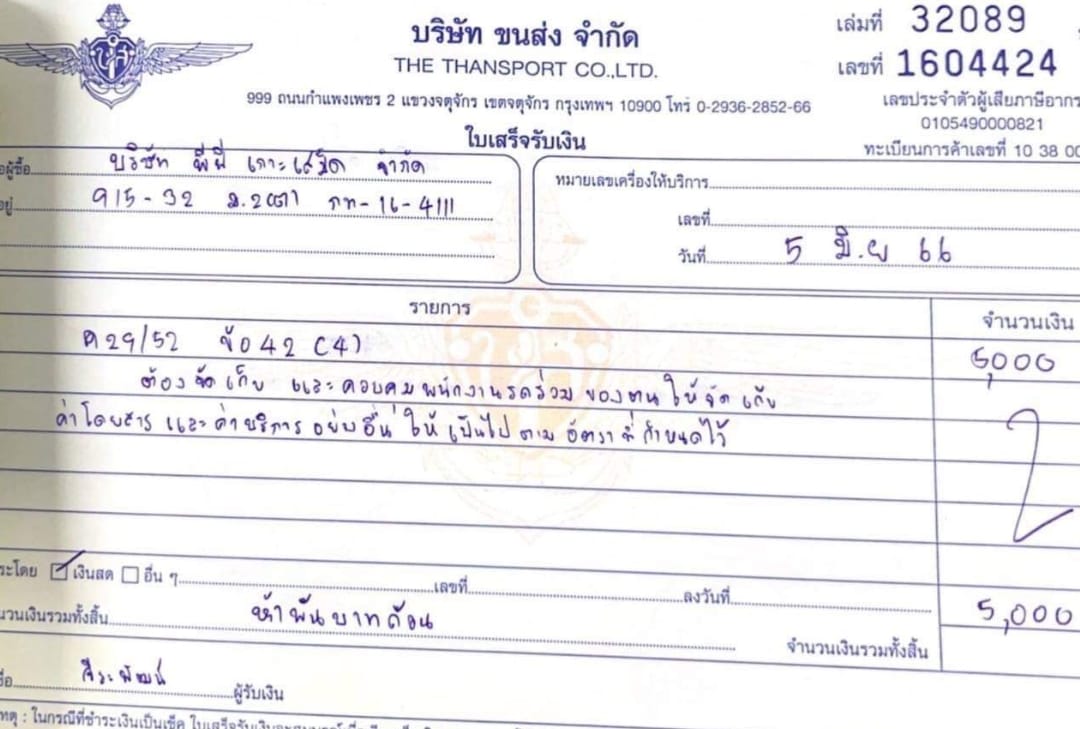 บริษัท ขนส่ง จำกัด
THE THANSPORT CO.,LTD.
999 ถนนกำแพงเพชร 2 แขวงจตุจักร เขตจตุจักร กรุงเทพฯ 10900 โทร 0-2936-2852-66
เล่มที่ 32089
เลขที่ 1604424
เลขประจำตัวผู้เสียภาษีอากร
0105490000821
ทะเบียนการค้าเลขที่ 10 38 00
ใบเสร็จรับเงิน
อผู้ซื้อ บริษัท พีพี เกาะเสม็ด จำกัด
อยู่ 915-32 ม.2(ต) กท-16-4111
หมายเลขเครื่องให้บริการ
เลขที่
วันที่ 5 มิ.ย 66
รายการ จำนวนเงิน
ค 29/52 ข้อ 42 (4) 5,000
ต้องจัดเก็บ และควบคุมพนักงานรถร่วมของตนให้จัดเก็บ
ค่าโดยสาร และค่าบริการอย่างอื่นให้เป็นไปตามอัตราที่กำหนดไว้
ระโดย เงินสด อื่น ๆ เลขที่ ลงวันที่
นวนเงินรวมทั้งสิ้น ห้าพันบาทถ้วน จำนวนเงินรวมทั้งสิ้น 5,000
ชื่อ ผู้รับเงิน
เหตุ : ในกรณีที่ชำระเงินเป็นเช็ค